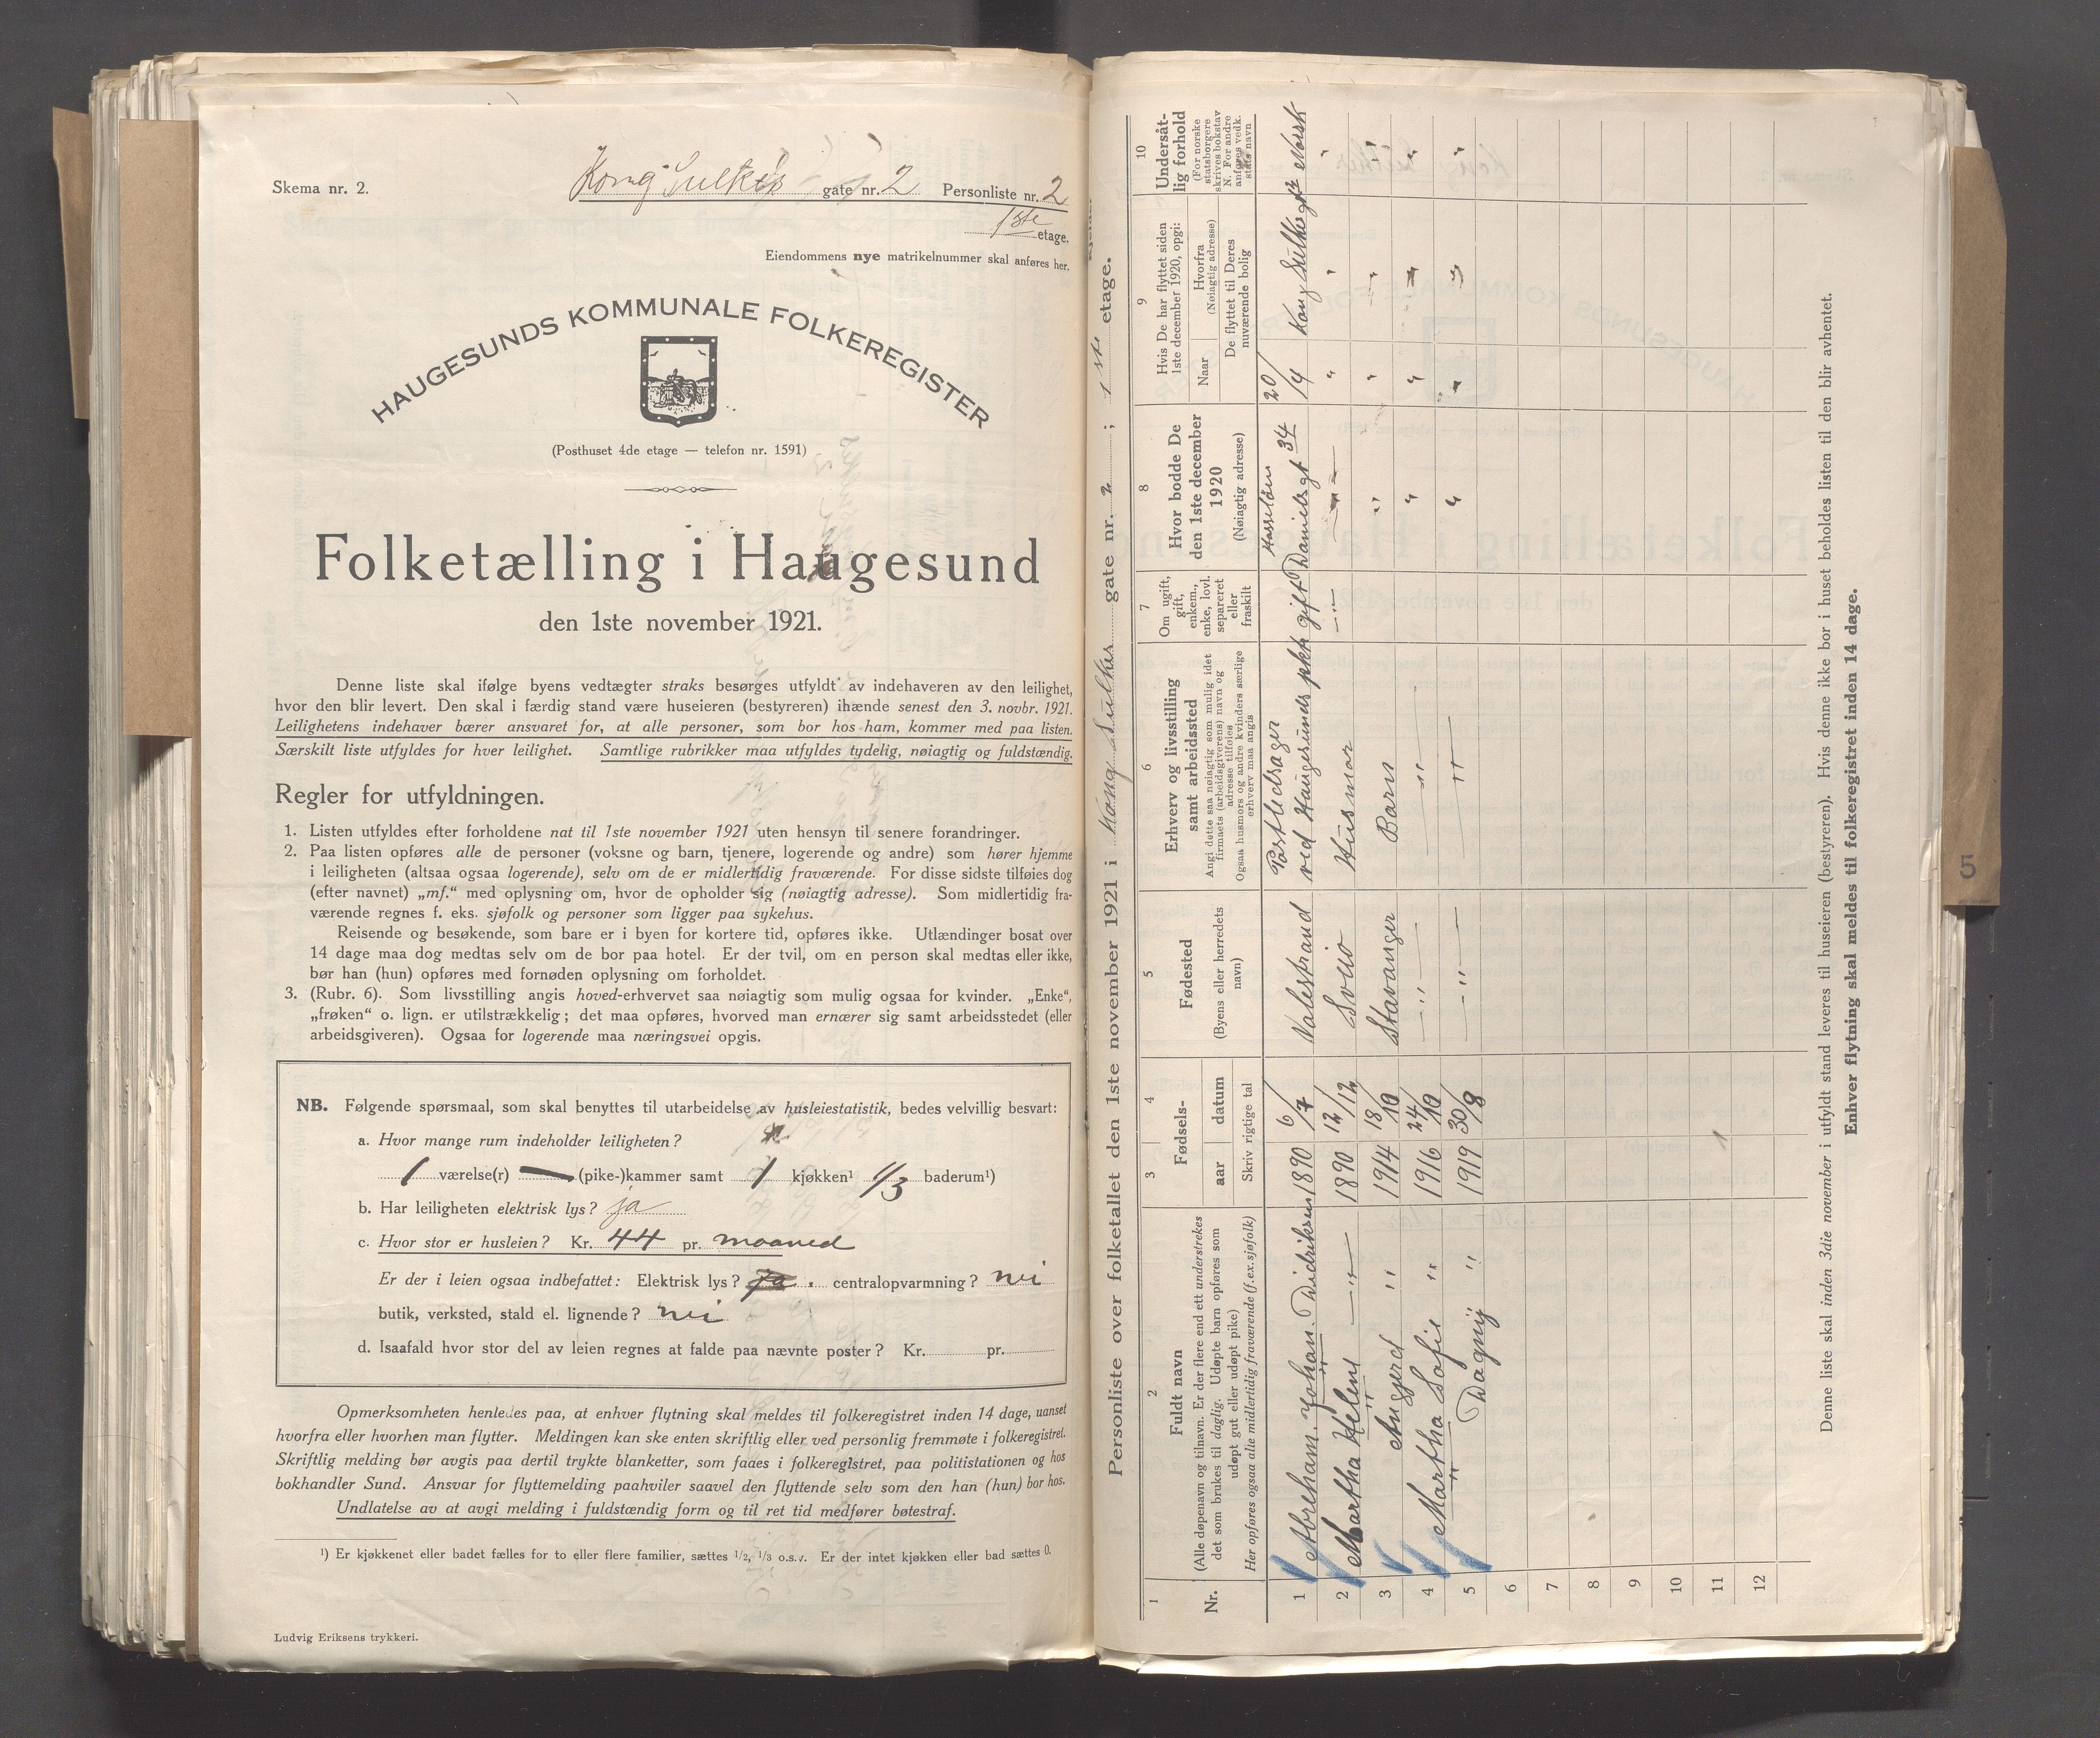 Skema nr. 2.
Kong Sulkes gate nr. 2 Personliste nr. 2
1ste etage.
Eiendommens nye matrikelnummer skal anføres her.
HAUGESUNDS KOMMUNALE FOLKEREGISTER
(Posthuset 4de etage — telefon nr. 1591)
Folketælling i Haugesund
den 1ste november 1921.
Denne liste skal ifølge byens vedtægter straks besørges utfyldt av indehaveren av den leilighet,
hvor den blir levert. Den skal i færdig stand være huseieren (bestyreren) ihænde senest den 3. novbr. 1921.
Leilighetens indehaver bærer ansvaret for, at alle personer, som bor hos ham, kommer med paa listen.
Særskilt liste utfyldes for hver leilighet. Samtlige rubrikker maa utfyldes tydelig, nøiagtig og fuldstændig.
Regler for utfyldningen.
1. Listen utfyldes efter forholdene nat til 1ste november 1921 uten hensyn til senere forandringer.
2. Paa listen opføres alle de personer (voksne og barn, tjenere, logerende og andre) som hører hjemme
i leiligheten (altsaa ogsaa logerende), selv om de er midlertidig fraværende. For disse sidste tilføies dog
(efter navnet) „mf.“ med oplysning om, hvor de opholder sig (nøiagtig adresse). Som midlertidig fra-
værende regnes f. eks. sjøfolk og personer som ligger paa sykehus.
Reisende og besøkende, som bare er i byen for kortere tid, opføres ikke. Utlændinger bosat over
14 dage maa dog medtas selv om de bor paa hotel. Er der tvil, om en person skal medtas eller ikke,
bør han (hun) opføres med fornøden oplysning om forholdet.
3. (Rubr. 6). Som livsstilling angis hoved-erhvervet saa nøiagtig som mulig ogsaa for kvinder. „Enke“,
„frøken“ o. lign. er utilstrækkelig; det maa opføres, hvorved man ernærer sig samt arbeidsstedet (eller
arbeidsgiveren). Ogsaa for logerende maa næringsvei opgis.
NB. Følgende spørsmaal, som skal benyttes til utarbeidelse av husleiestatistik, bedes velvillig besvart:
a. Hvor mange rum indeholder leiligheten?
1 værelse(r) — (pike-)kammer samt 1 kjøkken¹ 1/3 baderum¹)
b. Har leiligheten elektrisk lys? ja
c. Hvor stor er husleien? Kr. 44 pr. maaned
Er der i leien ogsaa indbefattet: Elektrisk lys? ja centralopvarmning? nei
butik, verksted, stald el. lignende? nei
d. Isaafald hvor stor del av leien regnes at falde paa nævnte poster? Kr. pr.
Opmerksomheten henledes paa, at enhver flytning skal meldes til folkeregistret inden 14 dage, uanset
hvorfra eller hvorhen man flytter. Meldingen kan ske enten skriftlig eller ved personlig fremmøte i folkeregistret.
Skriftlig melding bør avgis paa dertil trykte blanketter, som faaes i folkeregistret, paa politistationen og hos
bokhandler Sund. Ansvar for flyttemelding paahviler saavel den flyttende selv som den han (hun) bor hos.
Undlatelse av at avgi melding i fuldstændig form og til ret tid medfører bøtestraf.
¹) Er kjøkkenet eller badet fælles for to eller flere familier, sættes 1/2, 1/3 o.s.v. Er der intet kjøkken eller bad sættes 0.
Ludvig Eriksens trykkeri.
Personliste over folketallet den 1ste november 1921 i Kong Sulkes gate nr. 2 ; 1ste etage.
1 2 3 4 5 6 7 8 9 10
Nr.
Fuldt navn
(Alle døpenavn og tilnavn. Er der flere end ett understrekes
det som brukes til daglig. Udøpte barn opføres som
udøpt gut eller udøpt pike)
Her opføres ogsaa alle midlertidig fraværende (f.ex. sjøfolk)
Fødsels-
aar datum
Skriv rigtige tal
Fødested
(Byens eller herredets
navn)
Erhverv og livsstilling
samt arbeidssted
Angi dette saa nøiagtig som mulig idet
firmaets (arbeidsgiverens) navn og
adresse tilføies
Ogsaa husmors og andre kvinders særlige
erhverv maa angis
Om ugift,
gift,
enkem.,
enke, lovl.
separeret
eller
fraskilt
Hvor bodde De
den 1ste december
1920
(Nøiagtig adresse)
Hvis De har flyttet siden
1ste december 1920, opgi:
Naar
Hvorfra
(Nøiagtig adresse)
De flyttet til Deres
nuværende bolig
Undersåt-
lig forhold
(For norske
statsborgere
skrives bokstav
N. For andre
anføres vedk.
stats navn
1 Abreham. Johan. Didriksen 1890 6/7 Valestrand Postbedrager ved Haugesunds pkk gift Hasseløen Danielsgt 34 20/4 Kong Sulkesgt Norsk
2 Martha Helene —"— 1890 12/12 Sveio Husmor —"— —"— " " "
3 Aagjerd " 1914 18/10 Stavanger Barn " " " "
4 Martha Sofie " 1916 24/10 —"— —"— " " " "
5 Dagny " 1919 30/8 —"— —"— " " " "
6
7
8
9
10
11
12
Denne liste skal inden 3die november i utfyldt stand leveres til huseieren (bestyreren). Hvis denne ikke bor i huset beholdes listen til den blir avhentet.
Enhver flytning skal meldes til folkeregistret inden 14 dage.
5